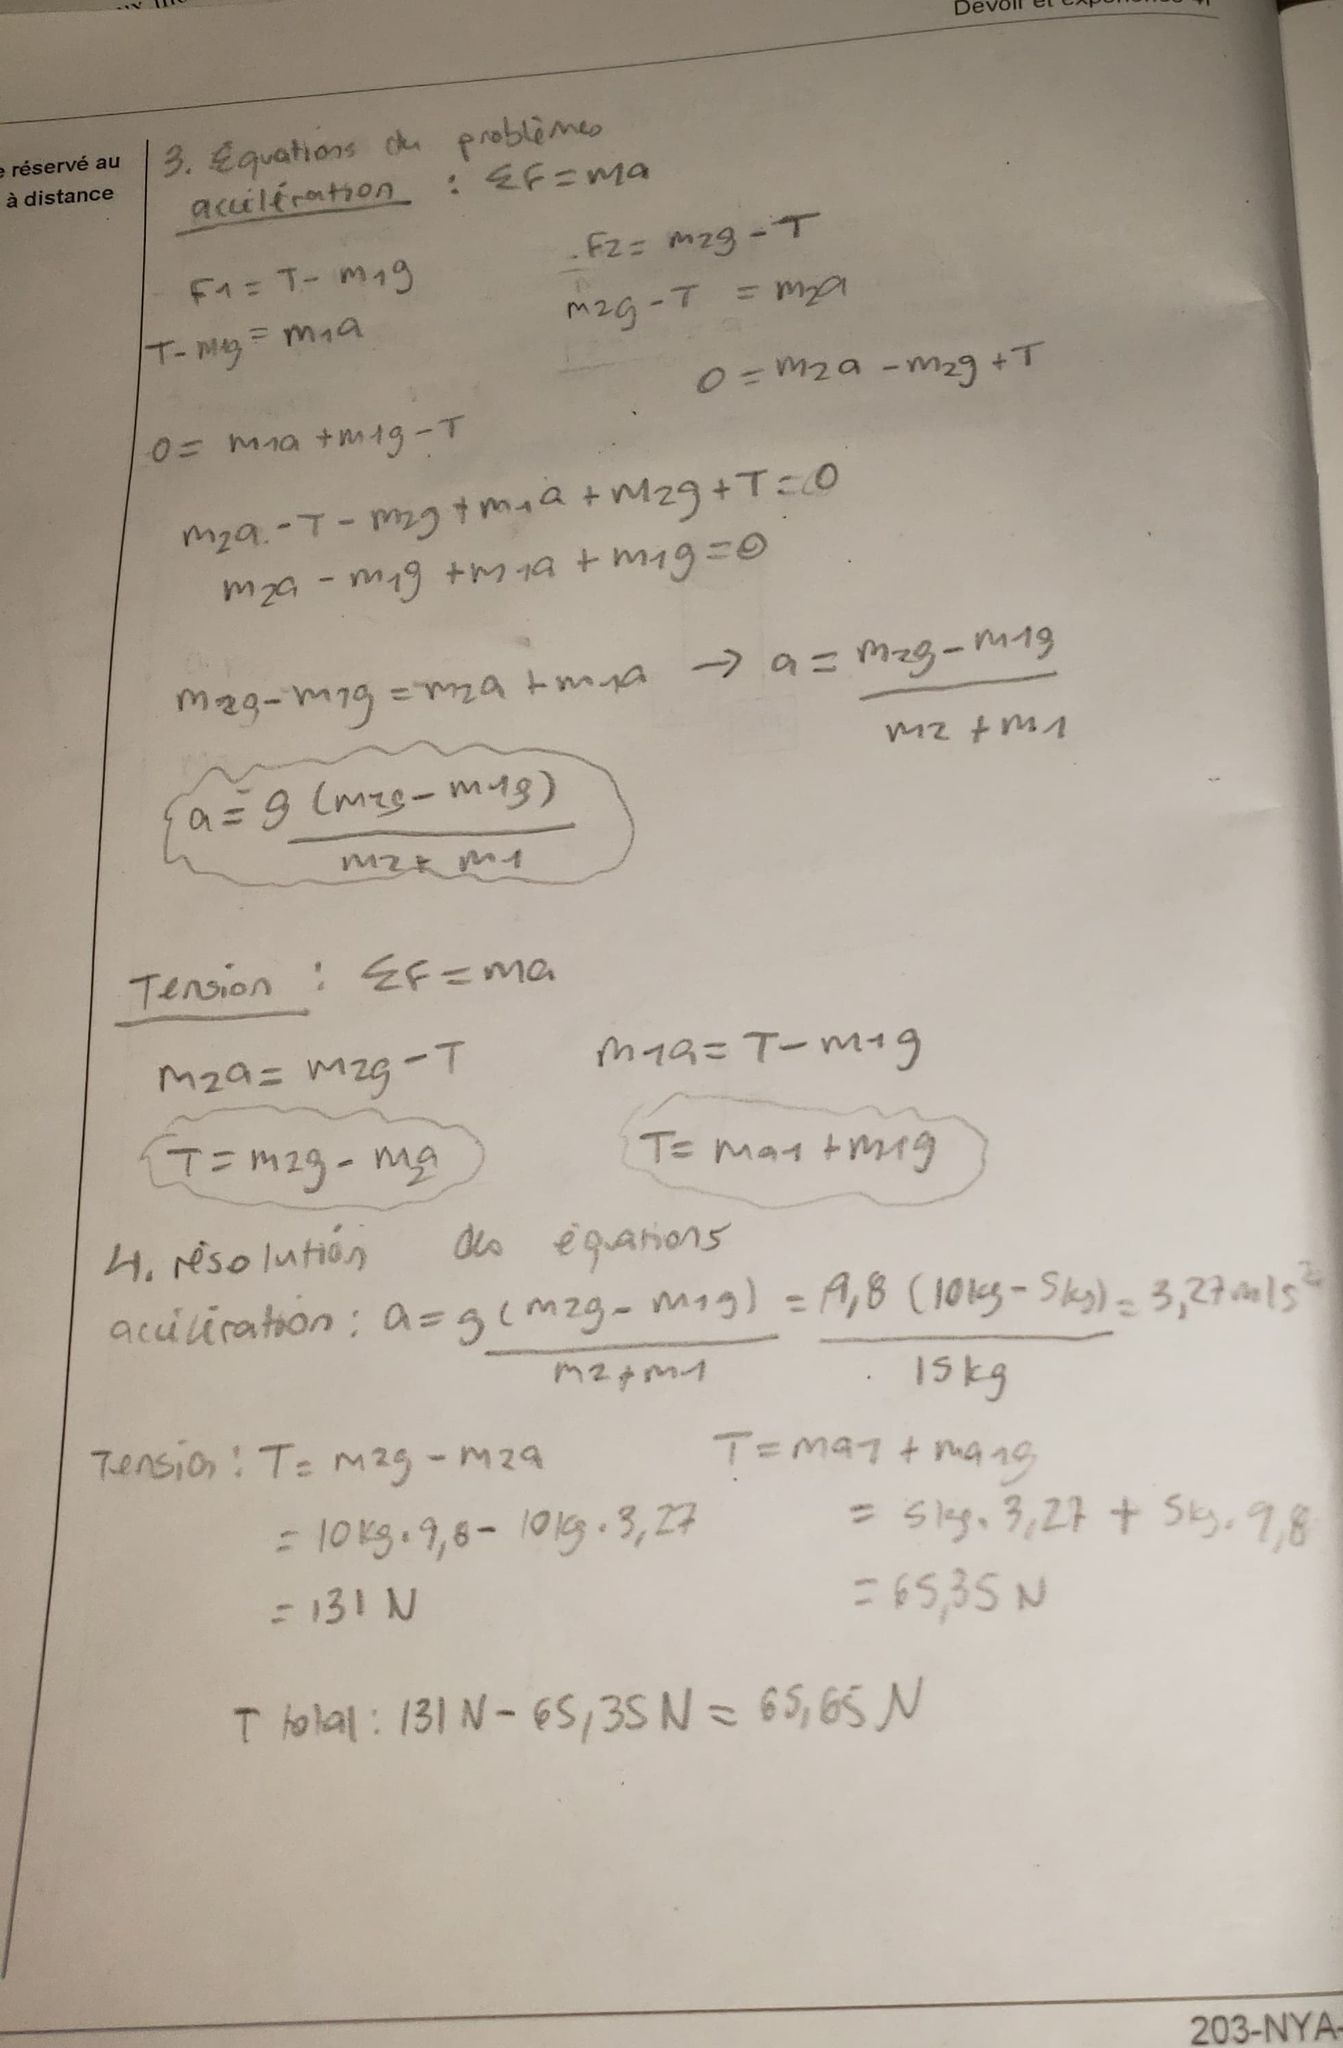 Devoir et
e réservé au
à distance
3. Équations du problèmes
accélération : ΣF = ma
F1 = T - m1g
F2 = m2g - T
T - m1g = m1a
m2g - T = m2a
0 = m2a - m2g + T
0 = m1a + m1g - T
m2a - T - m2g + m1a + m2g + T = 0
m2a - m1g + m1a + m1g = 0
m2g - m1g = m2a + m1a → a = m2g - m1g
m2 + m1
a = g (m2g - m1g)
m2 + m1
Tension : ΣF = ma
m2a = m2g - T
m1a = T - m1g
T = m2g - m2a
T = ma1 + m1g
4. résolution des équations
accélération : a = g (m2g - m1g) = 9,8 (10kg - 5kg) = 3,27 m/s²
m2 + m1
15 kg
Tension : T = m2g - m2a
T = ma1 + ma1g
= 10kg . 9,8 - 10kg . 3,27
= 5kg . 3,27 + 5kg . 9,8
= 131 N
= 65,35 N
T total : 131 N - 65,35 N = 65,65 N
203-NYA-